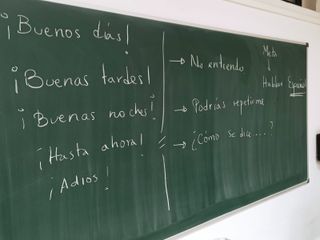 ¡Buenos días!
¡Buenas tardes!
¡Buenas noches!
¡Hasta ahora!
¡Adios!
→ No entiendo
→ Podrías repetirme
→ ¿Cómo se dice....?
Meta
Hablar Español